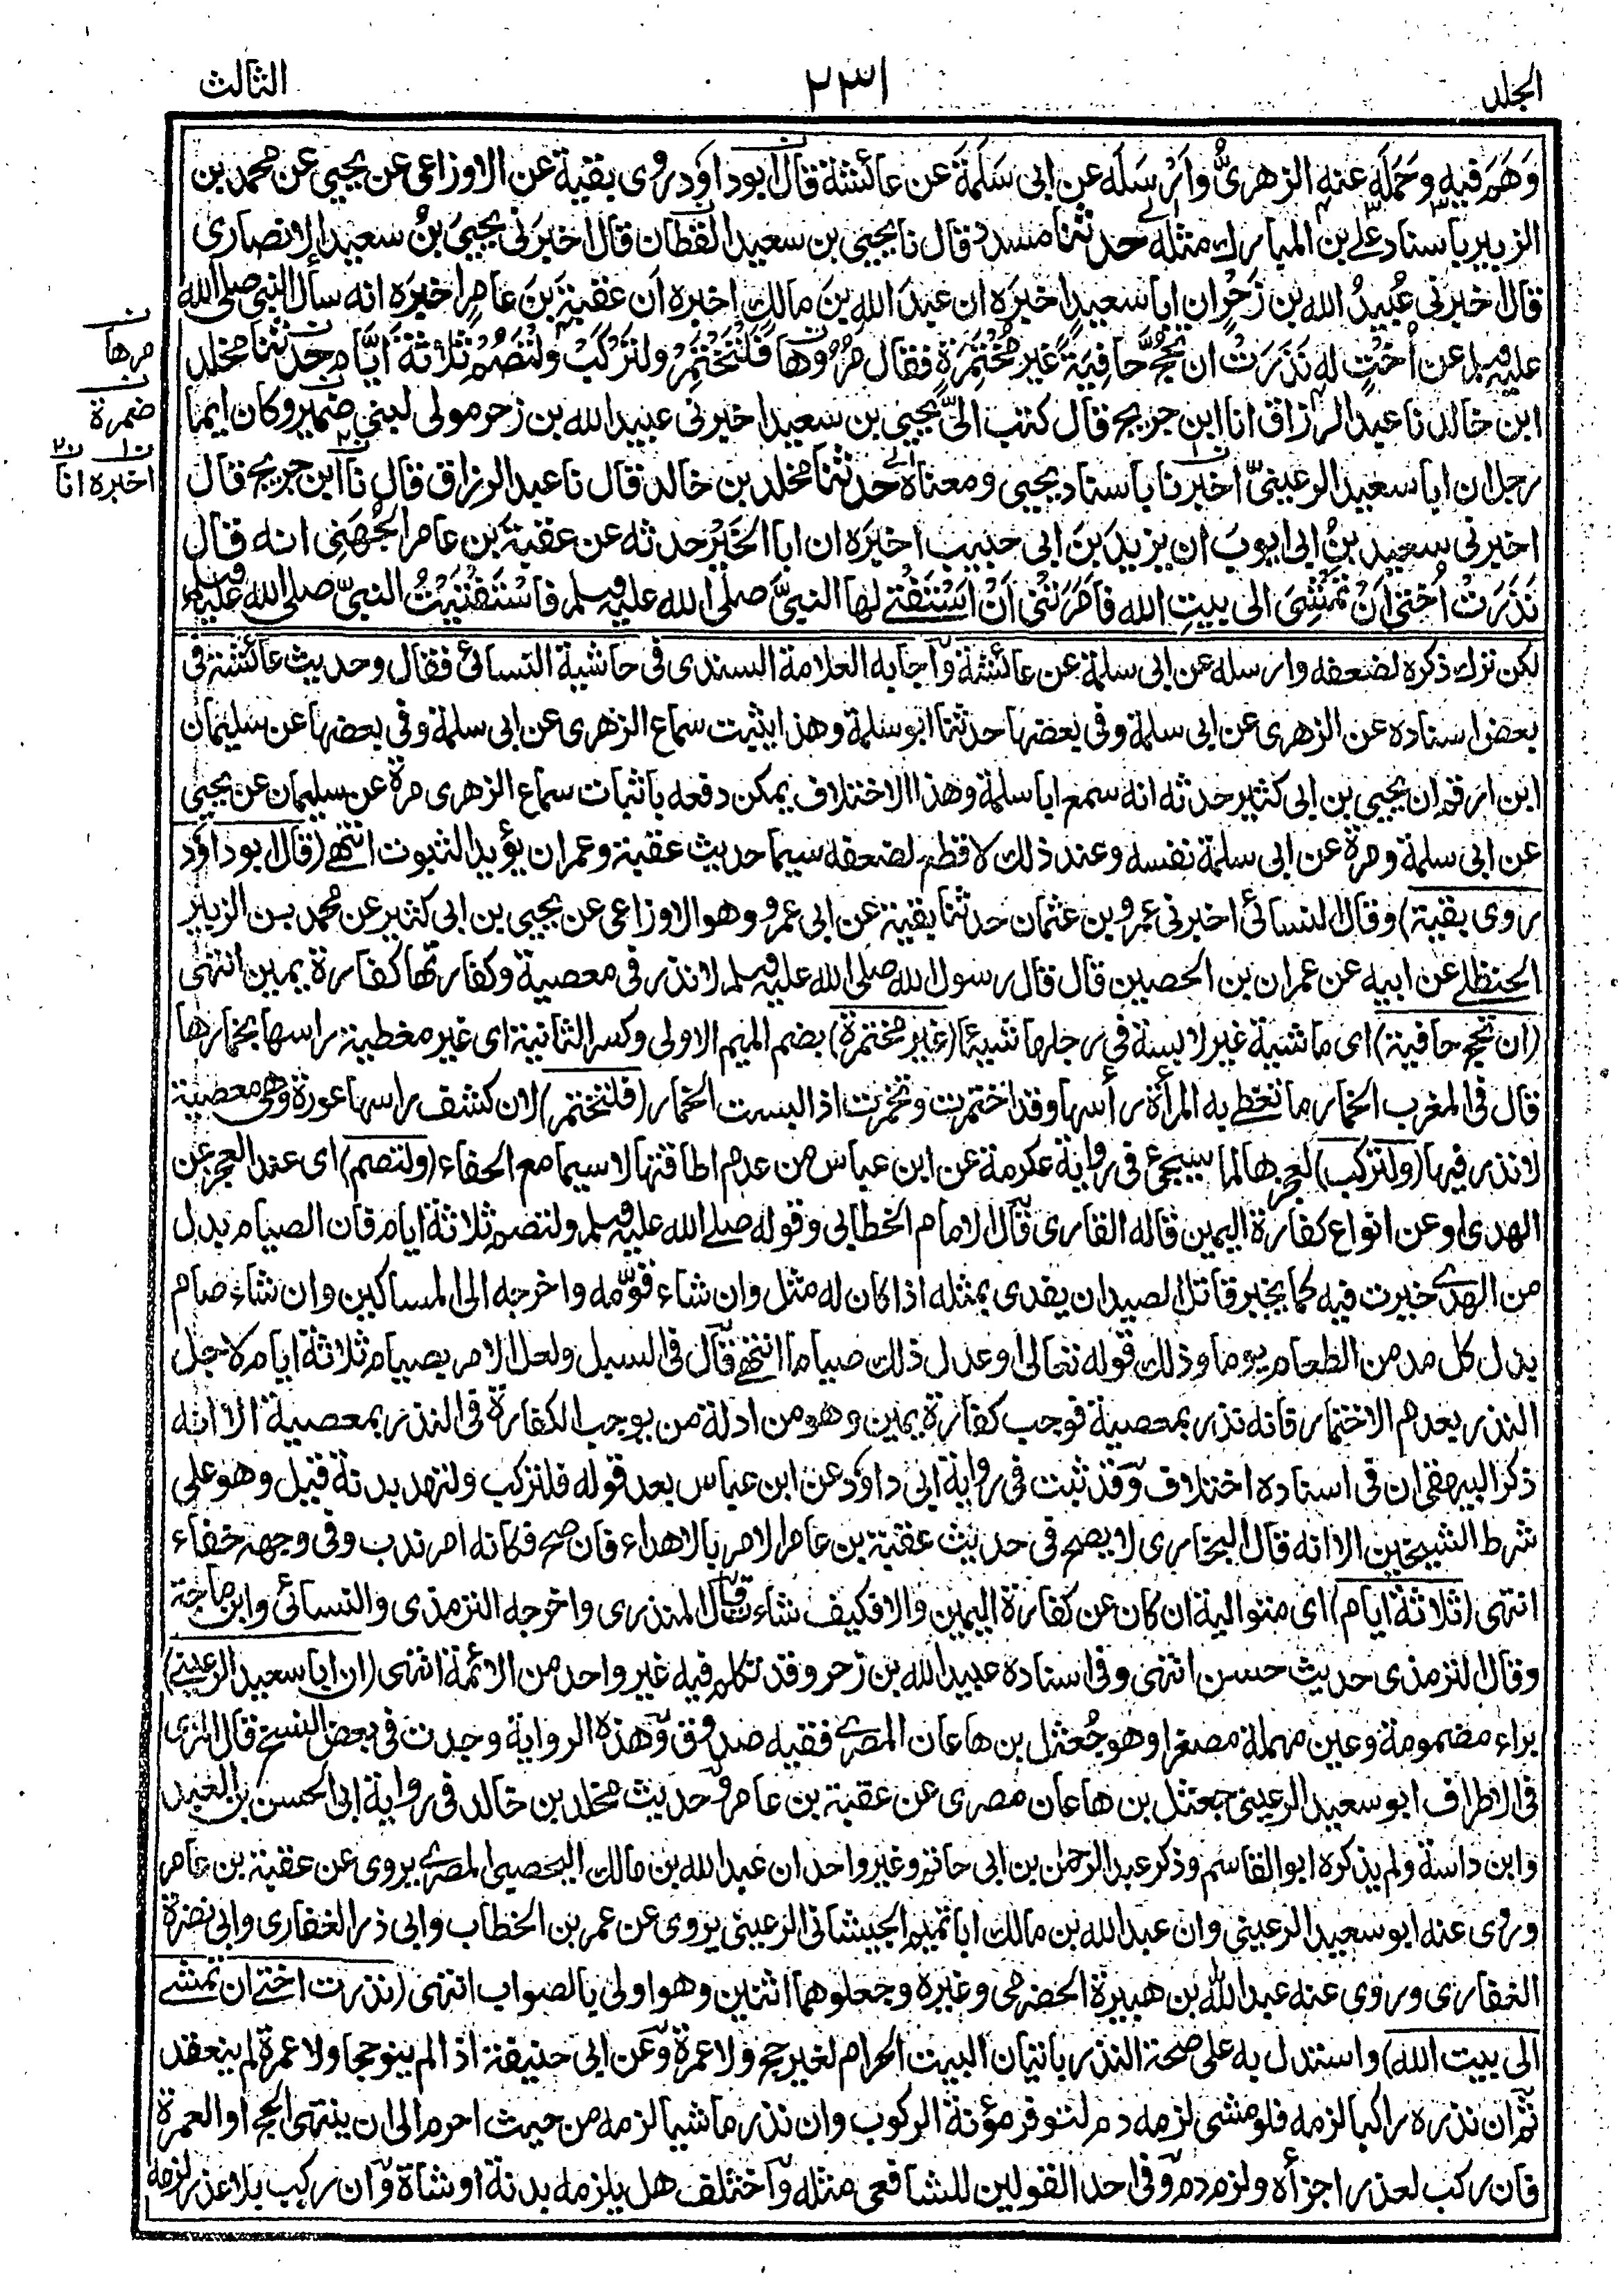 المجلد
٢٣١
الثالث
وَهَمَ فيه وحَمَلَه عنه الزهرىُّ واَرْسَلَه عن ابى سَلَمَةَ عن عائشة قال ابوداؤد روى بقية عن الاوزاعى عن يحيى عن محمد بن
الزبير باسناد على بن المبارك مثله حدثنا مسدد قال نا يحيى بن سعيد القطان قال اخبرنى يحيىَ بنُ سعيد الانصارى
قال اخبرنى عُبيدُ الله بن زَحْرٍ ان ابا سعيدٍ اخبرَه ان عبدَ الله بنَ مالك اخبره ان عقبةَ بنَ عامرٍ اخبرَه انه سأل النبى صلى الله
عليه وسلم عن اُخْتٍ له نَذَرَتْ ان تَحُجَّ حَافِيَةً غيرَ مُخْتَمِرَةٍ فقال مُرُوْهَا فَلْتَخْتَمِرْ ولتَرْكَبْ ولْتَصُمْ ثلاثةَ ايَّامٍ حدثنا مخلد
ابن خالد نا عبد الرزاق انا ابن جريج قال كتب الىَّ يحيى بن سعيد اخبرنى عبيد الله بن زحر مولى لبنى ضمير وكان ايما
رجل ان ابا سعيد الرعينىّ اخبرنا باسناد يحيى ومعناه حدثنا مخلد بن خالد قال نا عبد الرزاق قال نا ابن جريج قال
اخبرنى سعيد بنُ ابى ايوبَ ان يزيدَ بنَ ابى حبيب اخبرَه ان ابا الخَيْر حدثه عن عقبةَ بن عامر الجُهَنِى انه قال
نَذَرَتْ اُخْتِىْ اَنْ تَمْشِىَ الى بيتِ الله فاَمَرَتْنِىْ اَنْ اَسْتَفْتِىَ لها النبىَّ صلى الله عليه وسلم فاسْتَفْتَيْتُ النبىّ صلى الله عليه وسلم
مرها
ضمرة
اخبره انا
لكن ترك ذكره لضعفه وارسله عن ابى سلمة عن عائشة وآجابه العلامة السندى فى حاشية النسائى فقال وحديث عائشة فى
بعض اسناده عن الزهرى عن ابى سلمة وفى بعضها حدثنا ابو سلمة وهذا يثبت سماع الزهرى عن ابى سلمة وفى بعضها عن سليمان
ابن ارقم ان يحيى بن ابى كثير حدثه انه سمع ابا سلمة وهذا الاختلاف يمكن دفعه باثبات سماع الزهرى مرة عن سليمان عن يحيى
عن ابى سلمة ومرة عن ابى سلمة نفسه وعند ذلك لا قطع لضعفه سيما حديث عقبة وعمران يؤيد الثبوت انتهى (قال ابوداؤد
روى بقية) وقال النسائى اخبرنى عمرو بن عثمان حدثنا بقية عن ابى عمرو وهو الاوزاعى عن يحيى بن ابى كثير عن محمد بن الزبير
الحنظلى عن ابيه عن عمران بن الحصين قال قال رسول الله صلى الله عليه وسلم لا نذر فى معصية وكفارتها كفارة يمين انتهى
(ان تحج حافية) اى ماشية غير لابسة فى رجلها شيئا (غير مختمرة) بضم الميم الاولى وكسر الثانية اى غير مغطية راسها بخمارها
قال فى المغرب الخمار ما تغطى به المرأة رأسها وقد اختمرت وتخمرت اذا لبست الخمار (فلتختمر) لان كشف راسها عورة وهى معصية
لا نذر فيها (ولتركب) لعجزها لما سيجئ فى رواية عكرمة عن ابن عباس من عدم اطاقتها لاسيما مع الحفاء (ولتصم) اى عند العجز عن
الهدى او عن انواع كفارة اليمين قاله القارى قآل الامام الخطابى وقوله صلى الله عليه وسلم ولتصم ثلاثة ايام فان الصيام بدل
من الهدى خيرت فيه كما يخير قاتل الصيد ان يفدى بمثله اذا كان له مثل وان شاء قوّمه واخرجه الى المساكين وان شاء صام
بدل كل مد من الطعام يوما وذلك قوله تعالى او عدل ذلك صياما انتهى قآل فى السبل ولعل الامر بصيام ثلاثة ايام لاجل
النذر بعدم الاختمار فانه نذر بمعصية فوجب كفارة يمين وهو من ادلة من يوجب الكفارة فى النذر بمعصية الا انه
ذكر البيهقى ان فى اسناده اختلاف وّقد ثبت فى رواية ابى داؤد عن ابن عباس بعد قوله فلتركب ولتهد بدنة قيل وهو على
شرط الشيخين الا انه قال البخارى لا يصح فى حديث عقبة بن عامر الامر بالاهداء فان صح فكانه امر ندب وفى وجهه خفاء
انتهى (ثلاثة ايام) اى متوالية ان كان عن كفارة اليمين والا فكيف شاءت قآل المنذرى واخرجه الترمذى والنسائى وابن ماجة
وقال الترمذى حديث حسن انتهى وفى اسناده عبيد الله بن زحر وقد تكلم فيه غير واحد من الائمة انتهى (ان ابا سعيد الرعينى)
براء مضمومة وعين مهملة مصغرا وهو جُعثل بن هاعان المصرى فقيه صدوق وّهذه الرواية وجدت فى بعض النسخ قال المزى
فى الاطراف ابو سعيد الرعينى جعثل بن هاعان مصرى عن عقبة بن عامر وّحديث مخلد بن خالد فى رواية ابى الحسن بن العبد
وابن داسة ولم يذكره ابو القاسم وذكر عبد الرحمن بن ابى حاتم وغير واحد ان عبد الله بن مالك اليحصبى المصرى يروى عن عقبة بن عامر
وروى عنه ابو سعيد الرعينى وان عبد الله بن مالك ابا تميم الجيشانى الرعينى يروى عن عمر بن الخطاب وابى ذر الغفارى وابى نضرة
الغفارى وروى عنه عبد الله بن هبيرة الحضرمى وغيره وجعلوهما اثنين وهو اولى بالصواب انتهى (نذرت اختى ان تمشى
الى بيت الله) واستدل به على صحة النذر باتيان البيت الحرام لغير حج ولا عمرة وّعن ابى حنيفة اذا لم ينو حجا ولا عمرة لم ينعقد
ثم ان نذره راكبا لزمه فلو مشى لزمه دم لتوفر مؤنة الركوب وان نذر ماشيا لزمه من حيث احرم الى ان ينتهى الحج او العمرة
فان ركب لعذر اجزأه ولزم دم وّفى احد القولين للشافعى مثله وآختلف هل يلزمه بدنة او شاة وّان ركب بلا عذر لزمه